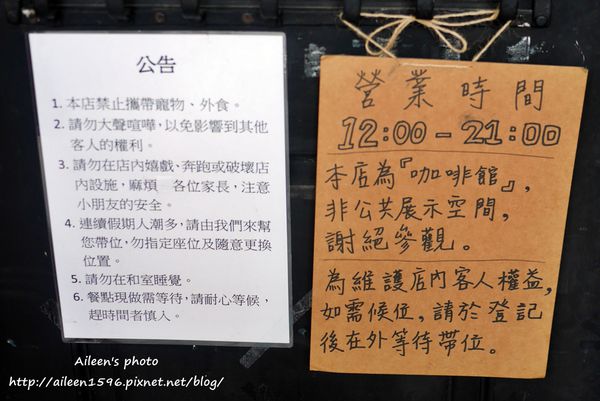 公告
1. 本店禁止攜帶寵物、外食。
2. 請勿大聲喧嘩，以免影響到其他
客人的權利。
3. 請勿在店內嬉戲、奔跑或破壞店
內設施，麻煩 各位家長，注意
小朋友的安全。
4. 連續假期人潮多，請由我們來幫
您帶位，勿指定座位及隨意更換
位置。
5. 請勿在和室睡覺。
6. 餐點現做需等待，請耐心等候，
趕時間者慎入。
營業時間
12:00-21:00
本店為『咖啡館』，
非公共展示空間，
謝絕參觀。
為維護店內客人權益，
如需候位，請於登記
後在外等待帶位。
Aileen's photo
http://aileen1596.pixnet.net/blog/